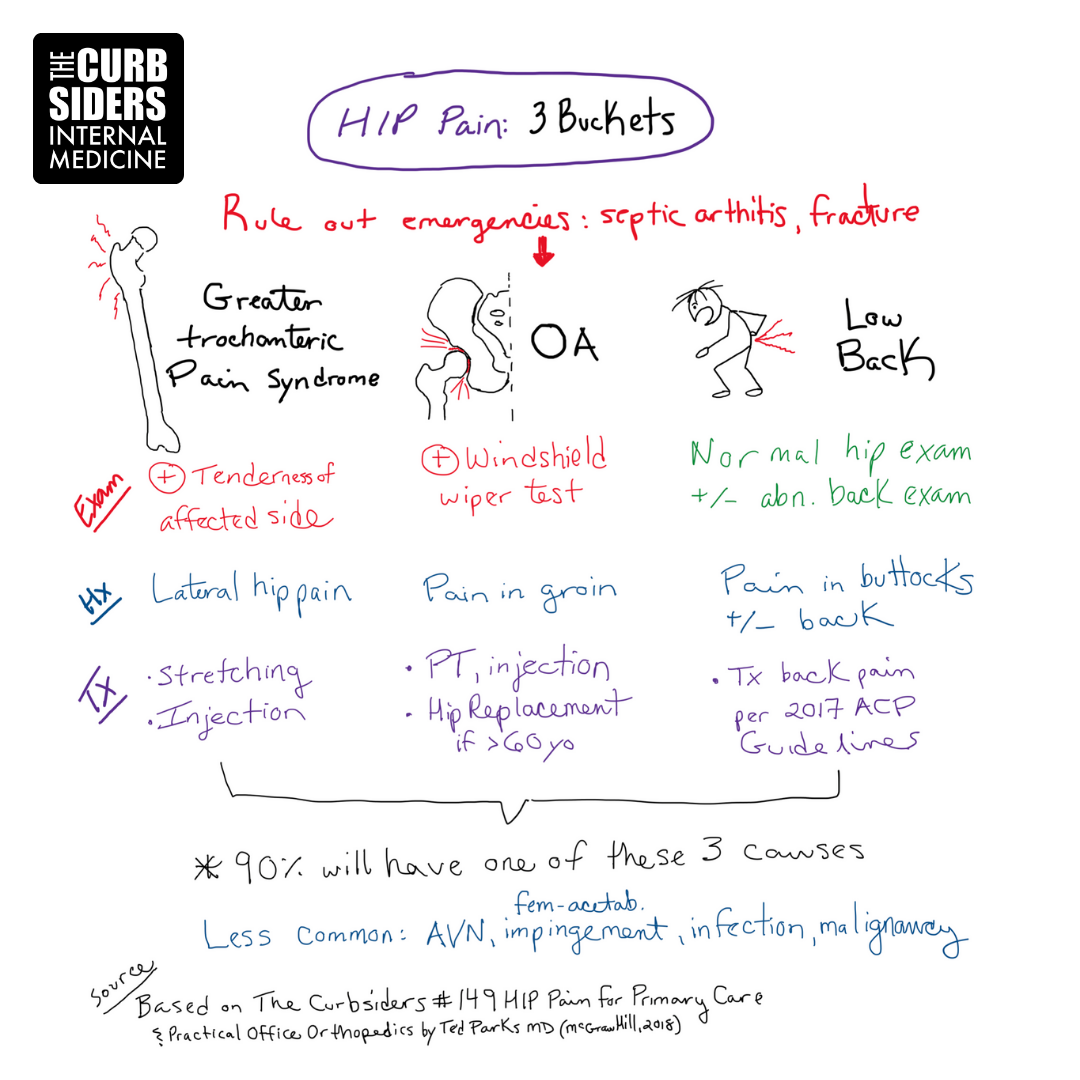 THE CURB
SIDERS
INTERNAL
MEDICINE
HIP Pain: 3 Buckets
Rule out emergencies: septic arthitis, fracture
Greater
trochanteric
Pain Syndrome
OA
Low
Back
Exam
+ Tenderness of
affected side
+ Windshield
wiper test
Normal hip exam
+/- abn. back exam
Hx
Lateral hip pain
Pain in groin
Pain in buttocks
+/- back
Tx
• Stretching
• Injection
• PT, injection
• Hip Replacement
if >60 yo
• Tx back pain
per 2017 ACP
Guidelines
* 90% will have one of these 3 causes
fem-acetab.
Less common: AVN, impingement, infection, malignancy
Source
Based on The Curbsiders #149 HIP Pain for Primary Care
& Practical Office Orthopedics by Ted Parks MD (McGraw Hill, 2018)